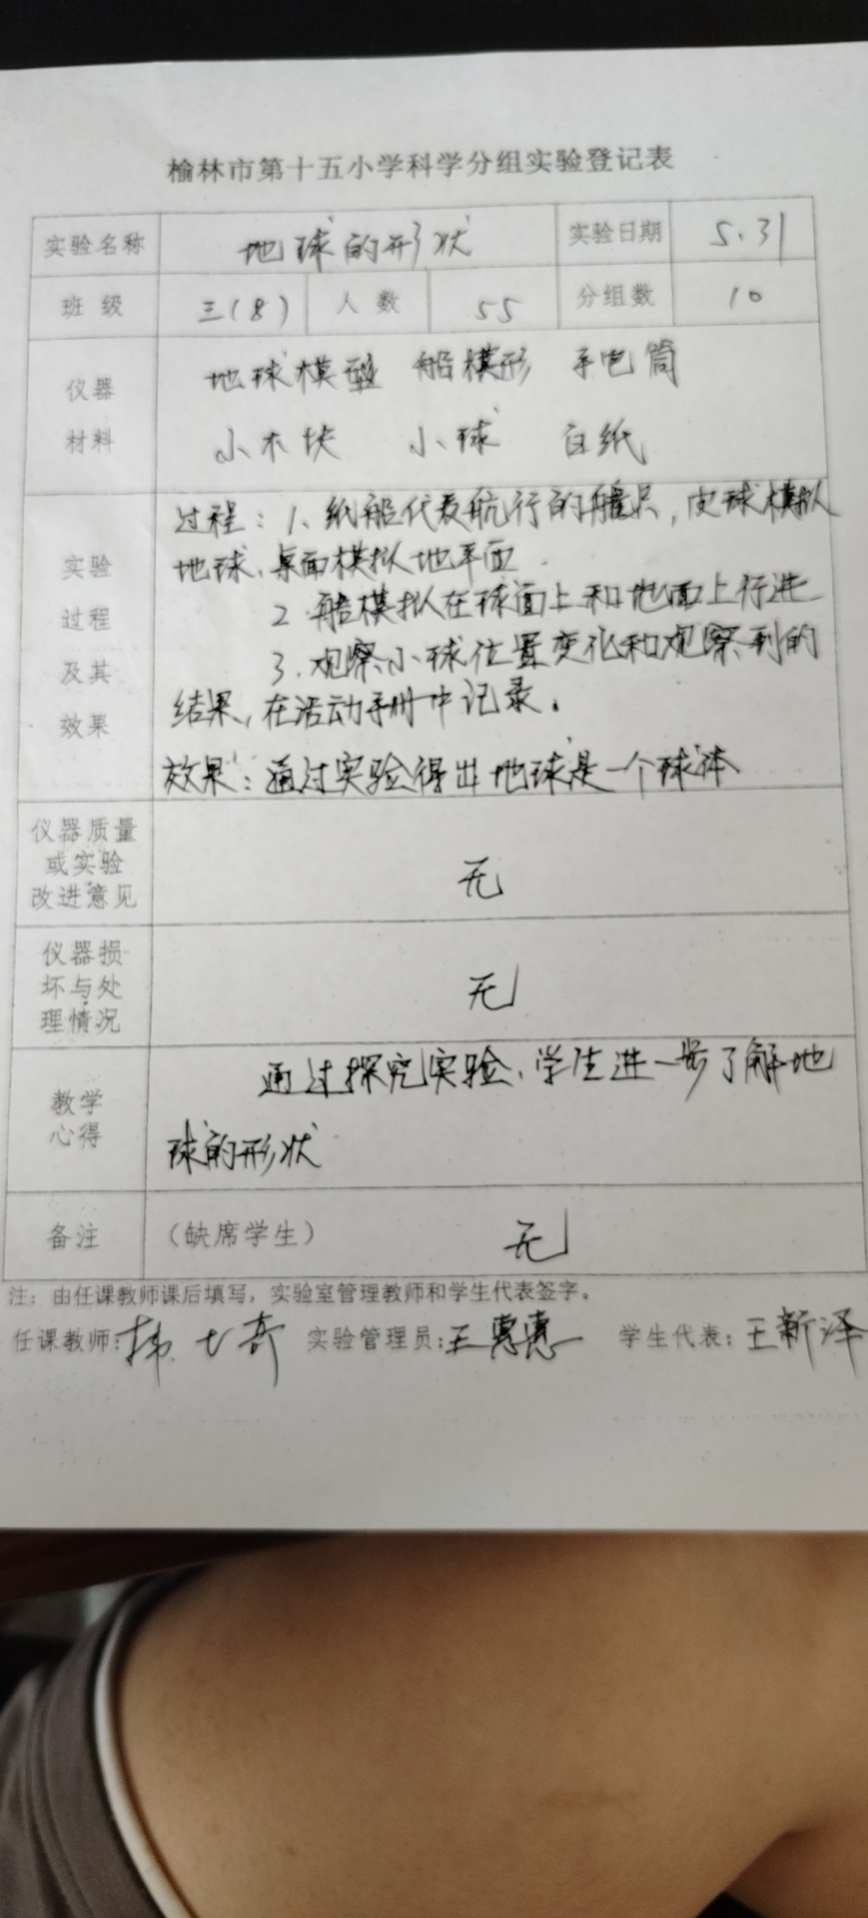 榆林市第十五小学科学分组实验登记表
实验名称 地球的形状 实验日期 5.31
班 级 三(8) 人 数 55 分组数 10
仪器 地球模型 船模形 手电筒
材料 小木块 小球 白纸
过程：1、纸船代表航行的船只，皮球模拟
实验 地球、桌面模拟地平面.
过程 2.船模拟在球面上和地面上行进
及其 3.观察小球位置变化和观察到的
效果 结果，在活动手册中记录。
效果：通过实验得出地球是一个球体
仪器质量
或实验 无
改进意见
仪器损
坏与处 无
理情况
通过探究实验、学生进一步了解地
教学
心得 球的形状
备注 （缺席学生） 无
注：由任课教师课后填写，实验室管理教师和学生代表签字。
任课教师: 实验管理员:王惠惠 学生代表:王新泽